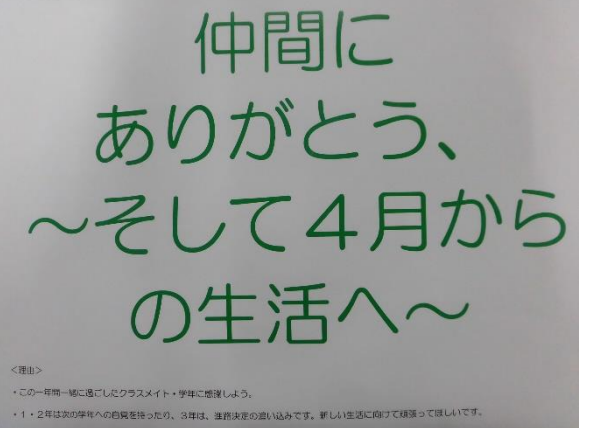 仲間に
ありがとう、
～そして４月から
の生活へ～
＜理由＞
・この一年間一緒に過ごしたクラスメイト・学年に感謝しよう。
・１・２年は次の学年への自覚を持ったり、３年は、進路決定の追い込みです。新しい生活に向けて頑張って欲しいです。